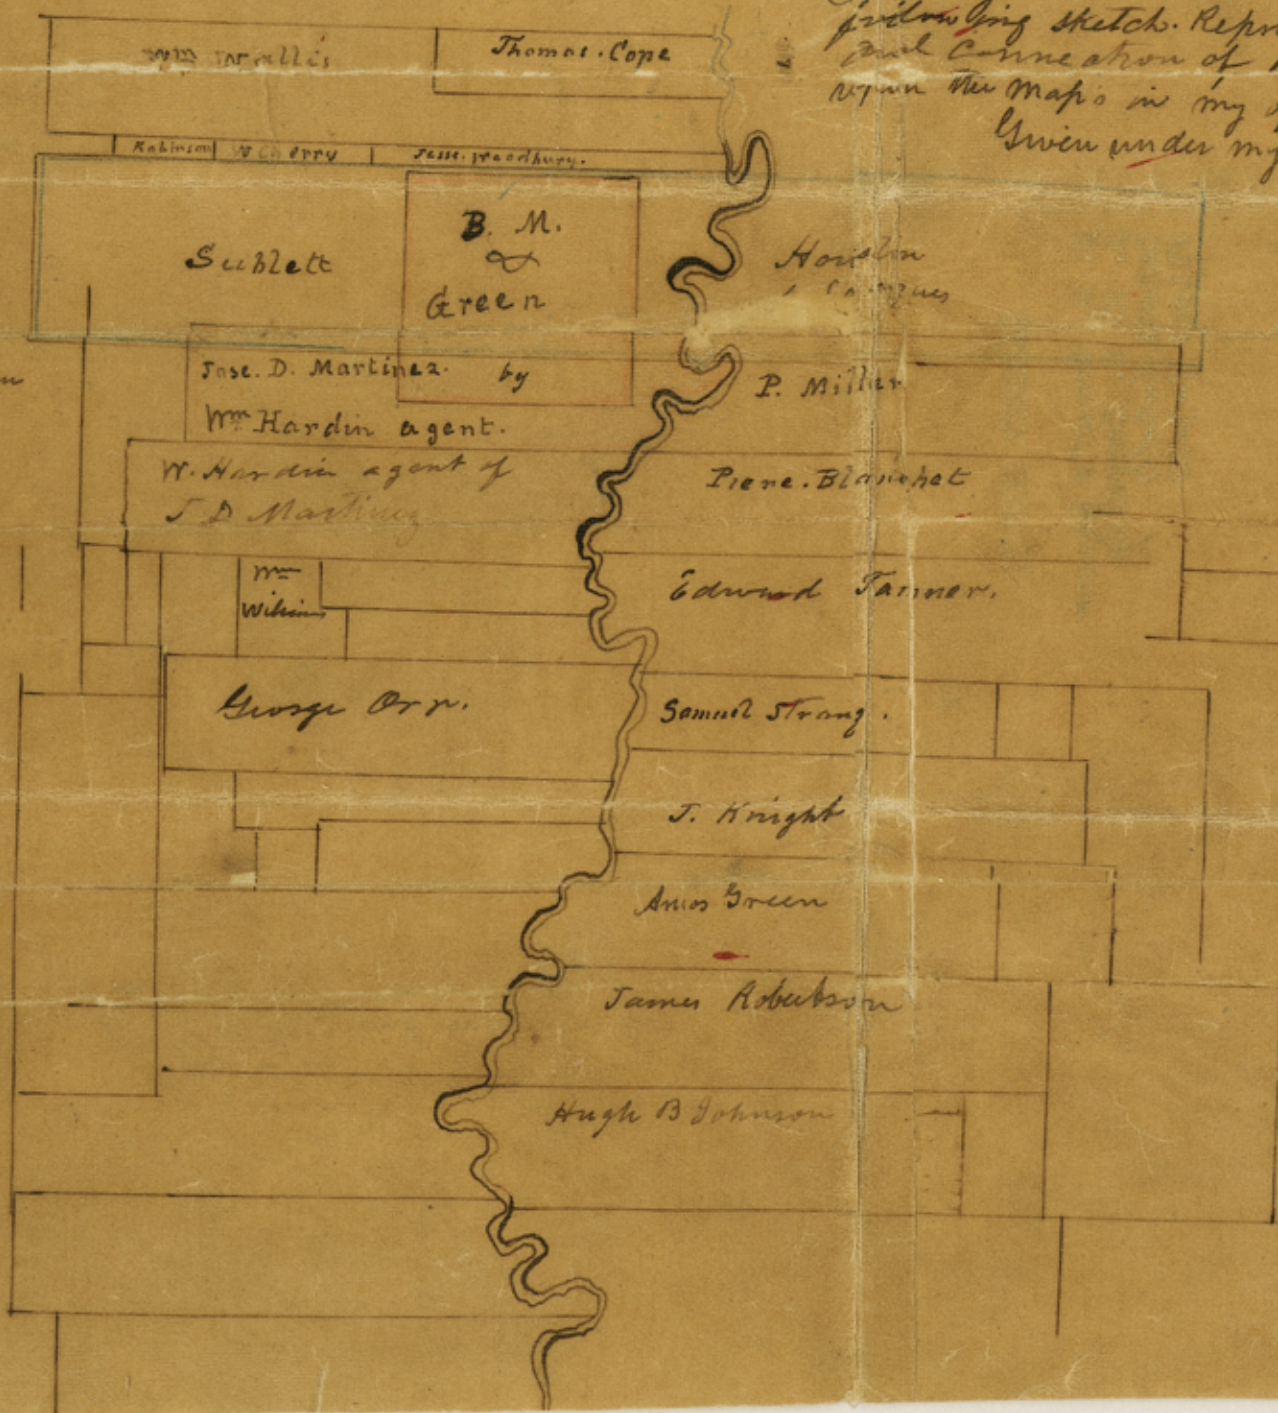 sketch. Repr
and Connection of
upon the Map's in my
Given under my
Thomas. Cope
Robinson
W Cherry
Jesse. Woodbury.
Sublett
B. M.
&
Green
by
Houston
Jose. D. Martinez.
Wm Hardin agent.
P. Miller
W. Hardin agent of
J D Martinez
Piere. Blanchet
Wm
Edward Tanner.
George Orr.
Samuel Strang.
J. Knight
Amos Green
James Robertson
Hugh B Johnson